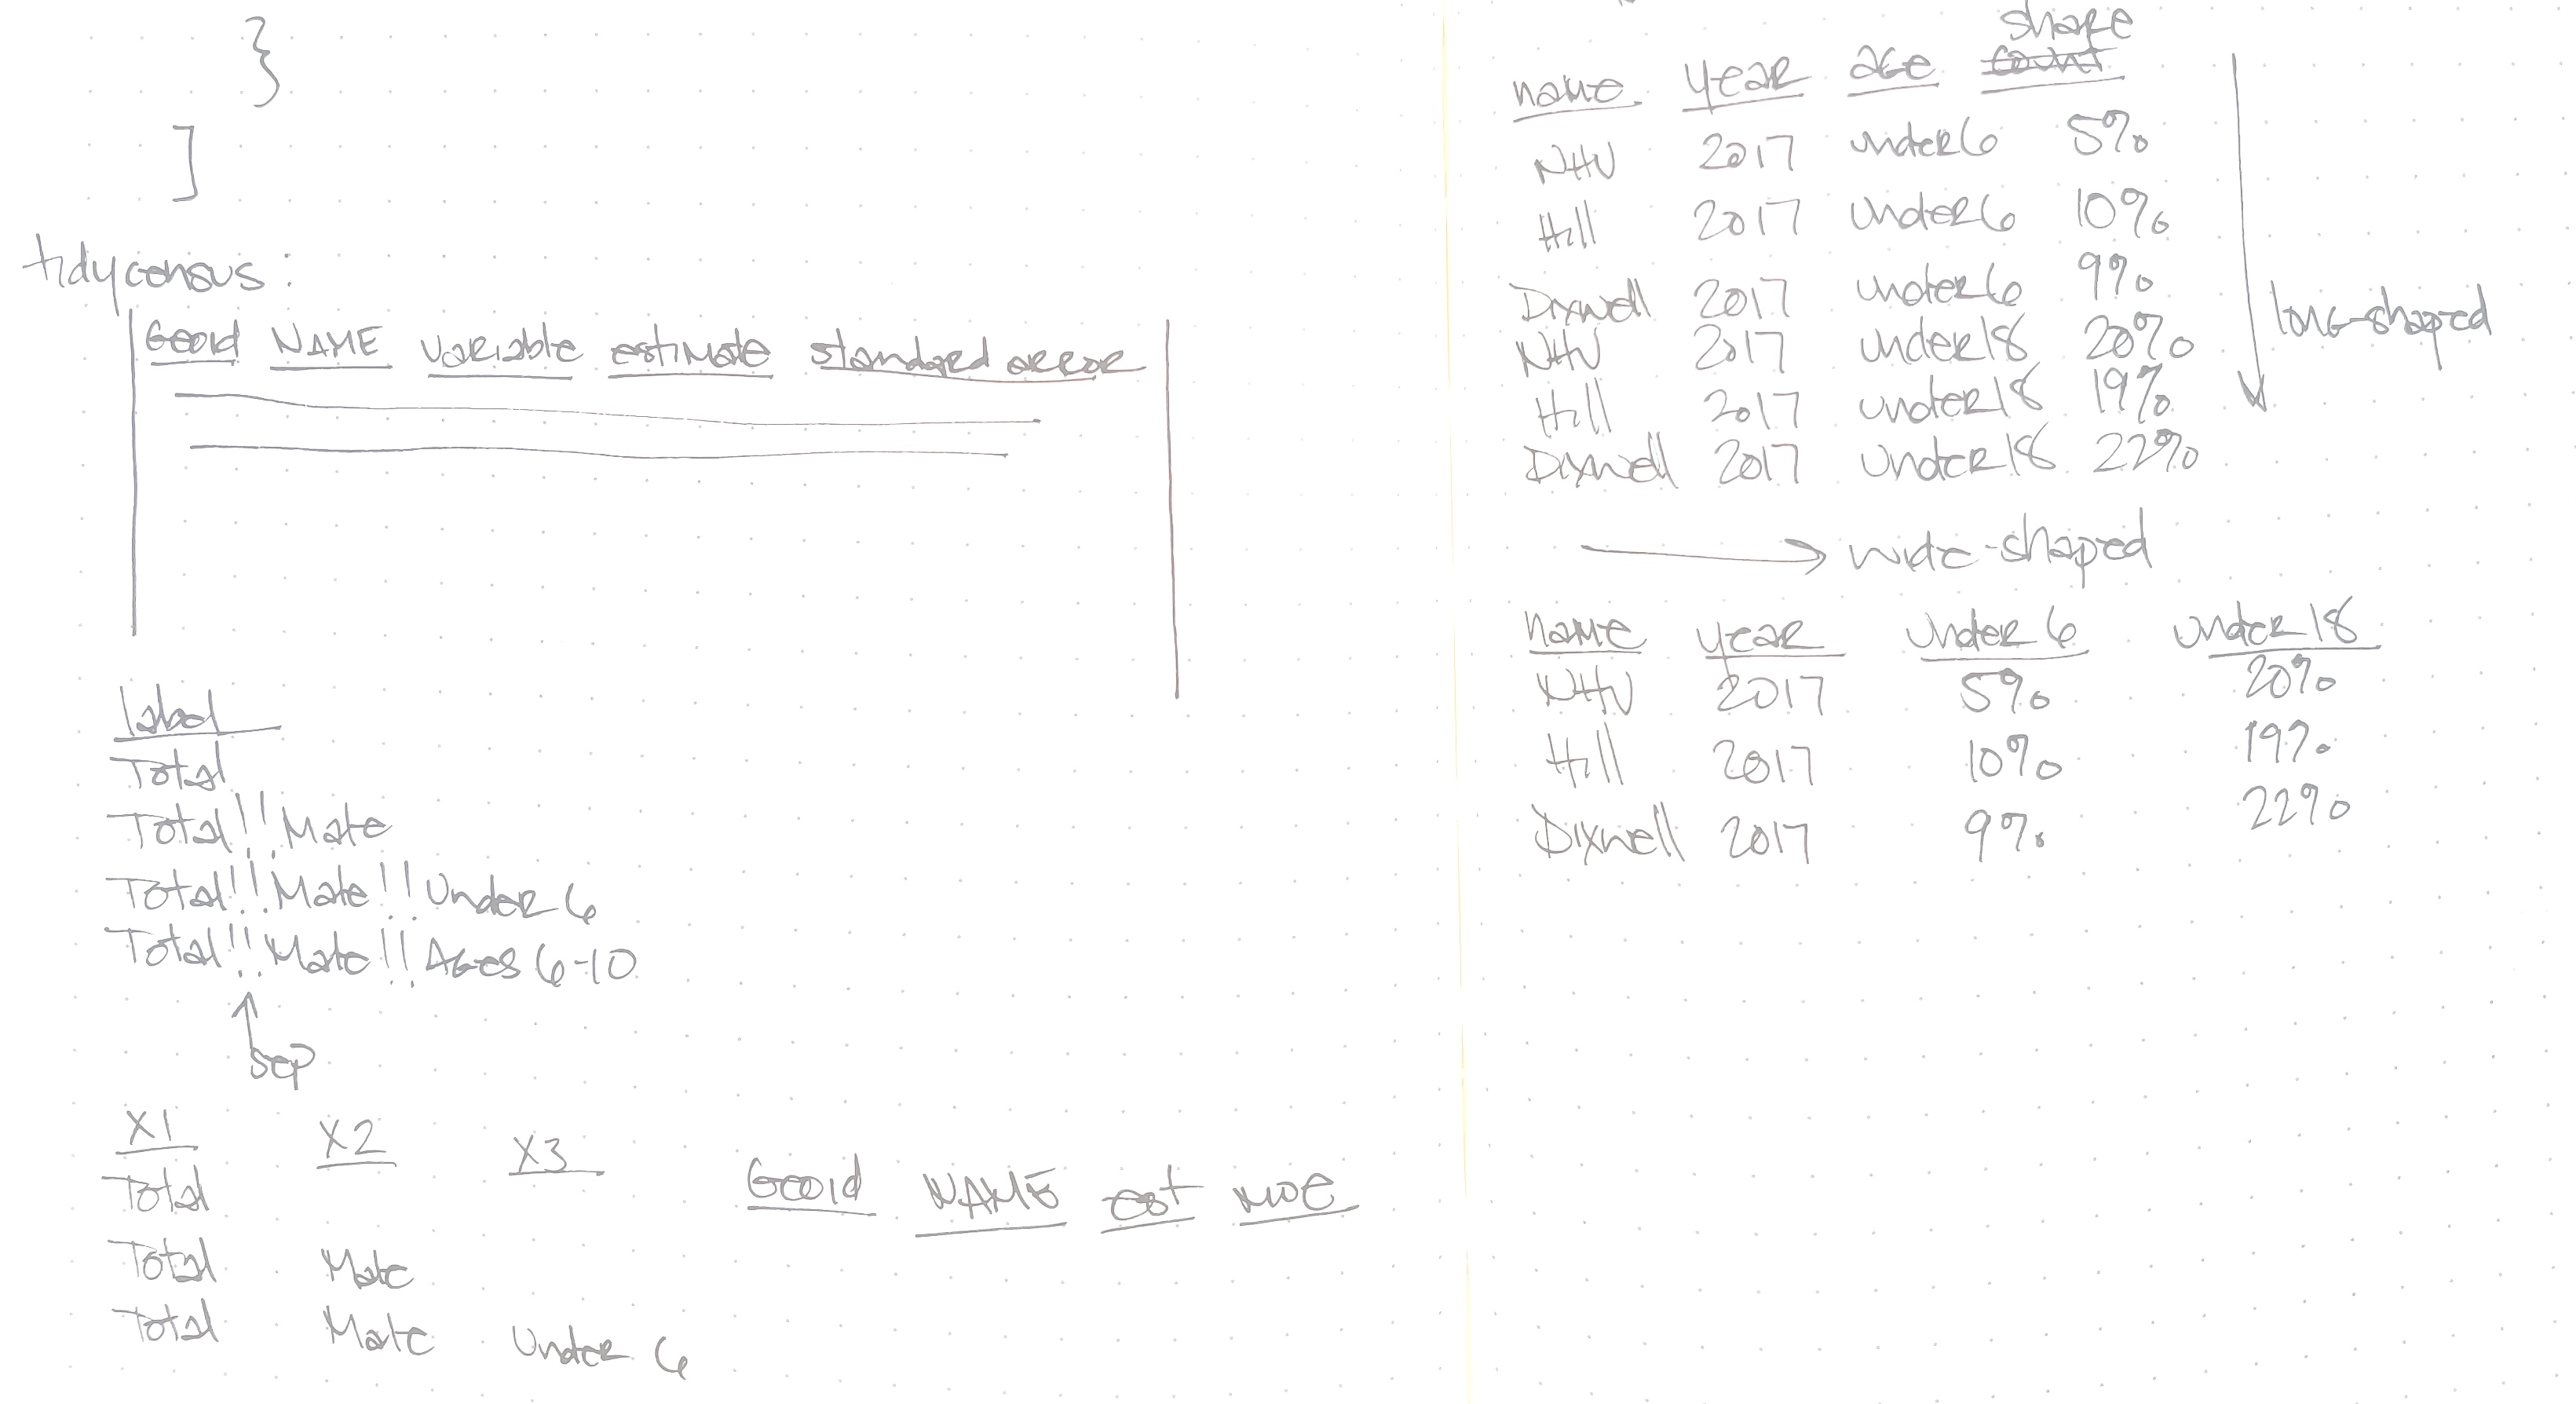 }
]
tidycensus:
GEOID NAME variable estimate standard error
label
Total
Total!!Male
Total!!Male!!Under 6
Total!!Male!!Ages 6-10
sep
X1 X2 X3
Total
Total Male
Total Male Under 6
GEOID NAME est moe
share
name year age count
NHV 2017 under6 5%
Hill 2017 under6 10%
Dixwell 2017 under6 9%
NHV 2017 under18 20%
Hill 2017 under18 19%
Dixwell 2017 under18 22%
long-shaped
wide-shaped
name year under 6 under 18
NHV 2017 5% 20%
Hill 2017 10% 19%
Dixwell 2017 9% 22%